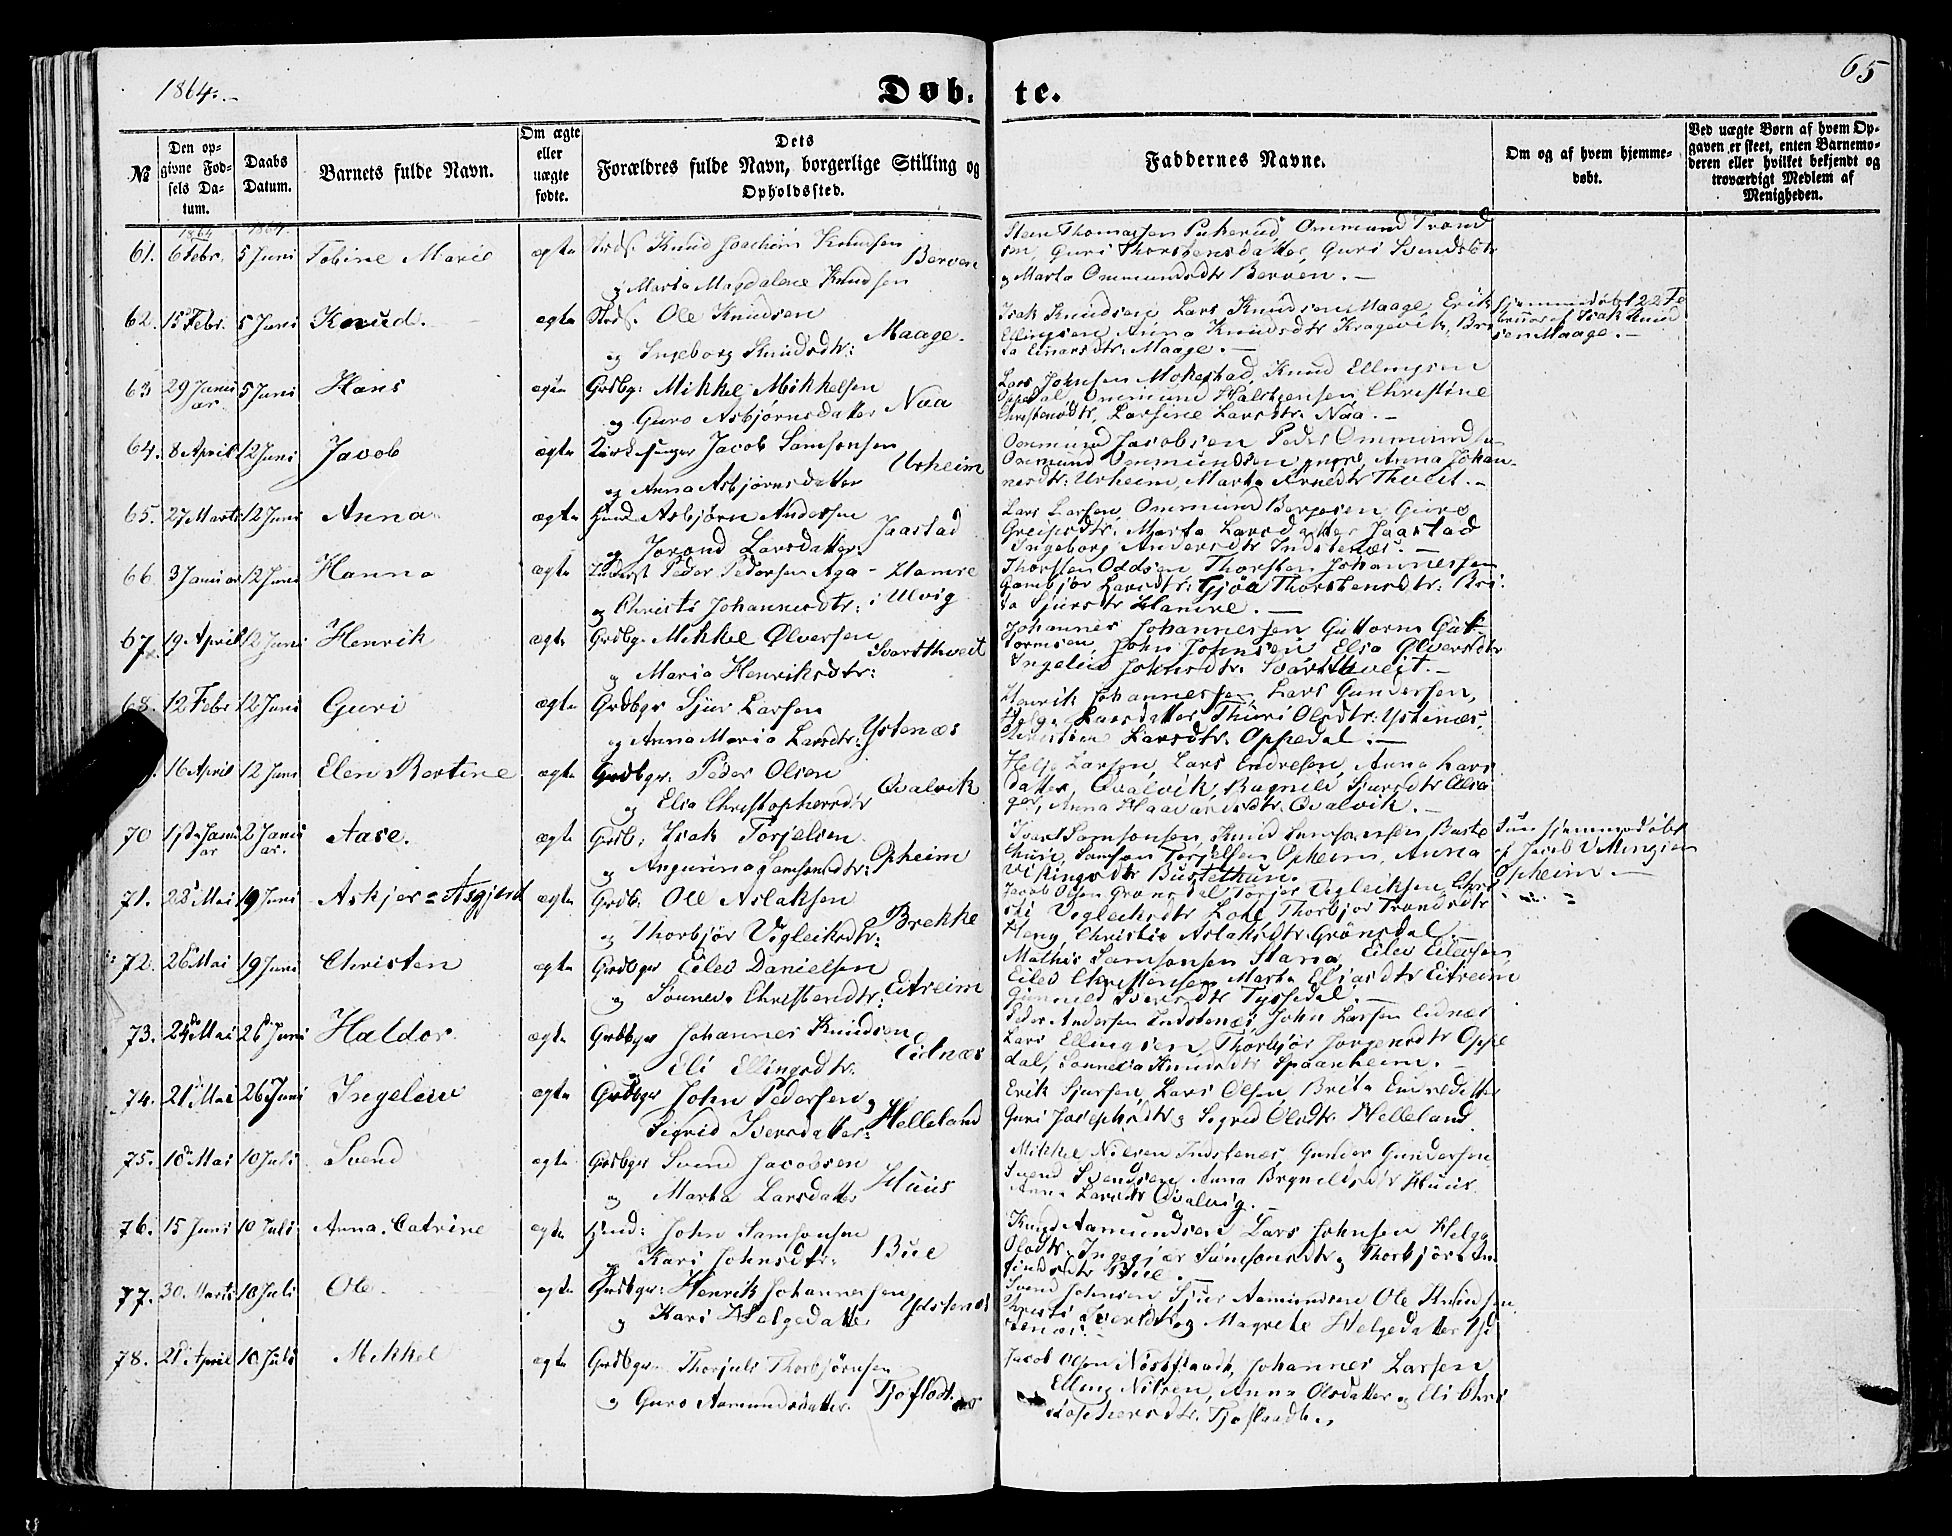 1864.
Døb-te.
65
№
Den opgivne Fødsels Datum.
Daabs Datum.
Barnets fulde Navn.
Om ægte eller uægte fødte.
Dets Forældres fulde Navn, borgerlige Stilling og Opholdssted.
Faddernes Navne.
Om og af hvem hjemmedøbt.
Ved uægte Børn af hvem Opgaven er skeet, enten Barnemoderen eller hvilket bekjendt og troværdigt Medlem af Menigheden.
1864 1864.
61. 6 Febr. 5 Juni Tobine Marie ægte Knud Joachim Knudsen
og Marta Magdalene Knudsen Berven
Thomassen Ommund Trond
sen, Guri Thorstensdatter, Guri Svendsdtr
og Marta Ommundsdtr Berven.
62. 15 Febr. 5 Juni Knud. ægte Ole Knudsen
og Ingeborg Knudsdtr: Maage.
Isak Knudsen, Lars Knudsen Maage, Erik
Ellingsen Anna Knudsdtr Kragevik, Bri
ta Einarsdtr: Maage.
Hjemmedøbt 22 Fe
bruar af Isak Knud
sen Maage.
63 29 Janu
ar 5 Juni Hans ægte Grdbg: Mikkel Mikkelsen
og Guro Asbjørnsdatter Naa
Lars Johnsen Mokestad, Knud Ellingsen
Oppedal, Ommund Christine
Christensdtr, Larsine Larsdtr. Naa.
64. 8 April 12 Juni Jacob ægte Kirkesanger Jacob Samsonsen
og Anna Asbjørnsdatter Urheim
Ommund Jacobsen Peder Ommundsen
Ommund Ommundsen yngre, Anna Johan-
nesdtr: Urheim, Marta Arnedtr Thveit.
65. 27 Marts 12 Juni Anna ægte Asbjørn Andersen
og Jorand Larsdatter Jaastad
Lars Larsen, Ommund Guro
Greipsdtr. Marta Larsdatter Jaastad
Ingeborg Andersdtr Indstenæs.
66. 3 Januar 12 Juni Hanna ægte Inderst Peder Pedersen Aga - Hamre
og Christi Johannesdtr: i Ulvig
Thorsten Oddsen Thorsten Johannessen
Gambjør Larsdtr: Gjøa Thorstensdtr: Bri
ta Sjursdtr Hamre.
67. 19 April 12 Juni Henrik ægte Grdbg. Mikkel Ølversen
og Maria Henriksdtr: Svartthveit
Johannes Johannessen Guttorm Gut
tormsen, John Johnsen Elsa Ølversdtr
Ingeleiv Johnsdtr. Svartthveit.
68. 12 Febr 12 Juni Guri ægte Grdbgr Sjur Larsen
og Anna Maria Larsdtr: Ystenæs
Henrik Johannessen, Lars Gundersen,
Helga Larsdatter Thuri Olsdtr: Ystenæs
Larsdtr. Oppedal.
16 April 12 Juni Elen Bertine ægte Grdbgr: Peder Olsen
og Elsa Christophersdtr Qvalvik
Helge Larsen, Lars Endresen, Anna Lars
datter, Qvalvik, Ragnild Sjursdtr Alsa
ger, Anna Haavardsdtr. Qvalvik.
70 1ste Janu
ar 2 Janu
ar. Aase. ægte Grdb: Isak Torjelsen
og Angunna Samsonsdtr: Opheim
Ivar Samsonsen, Knud Samsonsen Buste
thun, Samson Torjelsen Opheim, Anna
Vikingsdtr Bustethun.
hjemmedøbt
af Jacob Vikingsen
Opheim.
71. 22 Mai 19 Juni Askjer = Asgjerd ægte Grdb: Ole Aslaksen
og Thorbjør Vigleiksdtr: Brekke
Jacob Olsen Grønsdal Torjer Vigleiksen, Chri
sti Vigleiksdtr Lote Thorbjør Trondsdtr
Christie Aslaksdtr. Grønsdal
72. 26 Mai 19 Juni Christen ægte Grdbgr Eilev Danielsen
og Sonneva Christensdtr: Eitreim
Mathis Samsonsen Eilev Eilevsen
Eilev Christensen Marta Eliasdtr Eitreim
Gunnild Iversdtr Tyssedal.
73. 24 Mai 26 Juni Haldor. ægte Grdbgr Johannes Knudsen
og Eli Ellingsdtr. Eidnæs
Peder Andersen Indstenæs, John Larsen Eidnæs
Lars Ellingsen, Thorbjør Jørgensdtr Oppe
dal, Sonneva Amundsdtr Spaanheim.
74. 21 Mai 26 Juni Ingeleiv ægte Grdbgr John Pedersen og
Sigrid Iversdatter: Helleland
Erik Sjursen, Lars Olsen, Brita Endredatter
Guri Josephsdtr og Sigrid Olsdtr. Helleland.
75. 18 Mai 10 Juli Svend ægte Grdbgr Svend Jacobsen
og Marta Larsdatter Huus
Mikkel Nilsen Indstenæs, Gunder Gundersen,
Svend Svendsen Anna Brynildsdtr Huus
Anna Larsdtr Qvalvig.
76. 15 Juni 10 Juli Anna Catrine ægte John Samsonsen
og Kari Johnsdtr: Bue
Knud Aamundsen Lars Johnsen Helga
Olsdtr. Ingegjær Samsonsdtr og Thorbjør Am
undsdtr Bue.
77. 30. Marts 10 Juli Ole ægte Grdbgr: Henrik Johannessen
og Kari Helgedatter Ydstenæs
Svend Johnsen Sjur Aamundsen Ole Knudsen
Christi Iversdtr og Magrete Helgedatter Yd
stenæs.
78. 21 April 10 Juli Mikkel ægte Grdbgr. Thorjuls Thorbjørnsen
og Guro Aamundsdatter. Tjoflodt
Jacob Olsen Johannes Larsen
Elling Nilsen, Anna Olsdatter og Eli Chri
stophersdtr. Tjoflaadt.